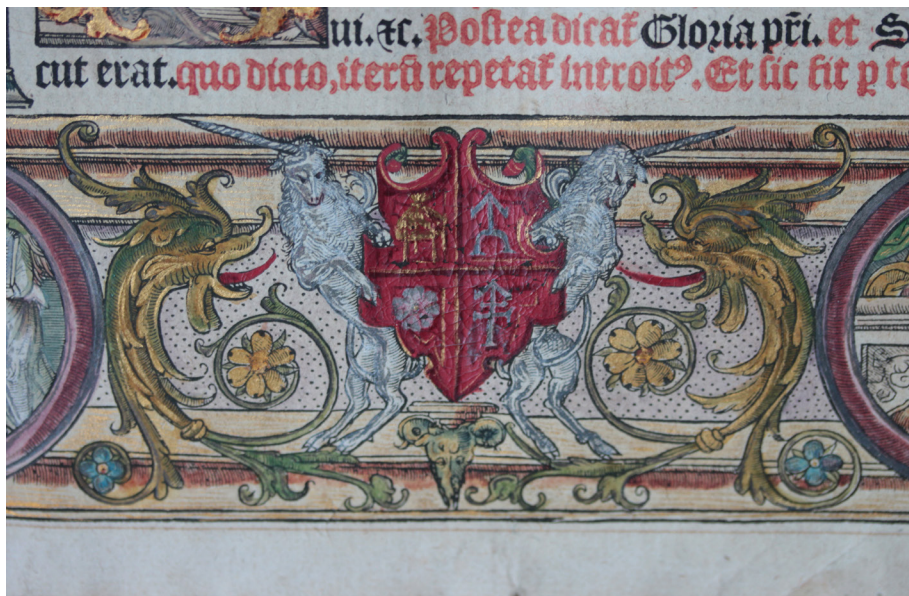 ui. ⁊c. Postea dicať Gloria pr̃i. et S
cut erat. quo dicto, iterũ repetať introitꝰ. Et sic fit ꝑ to